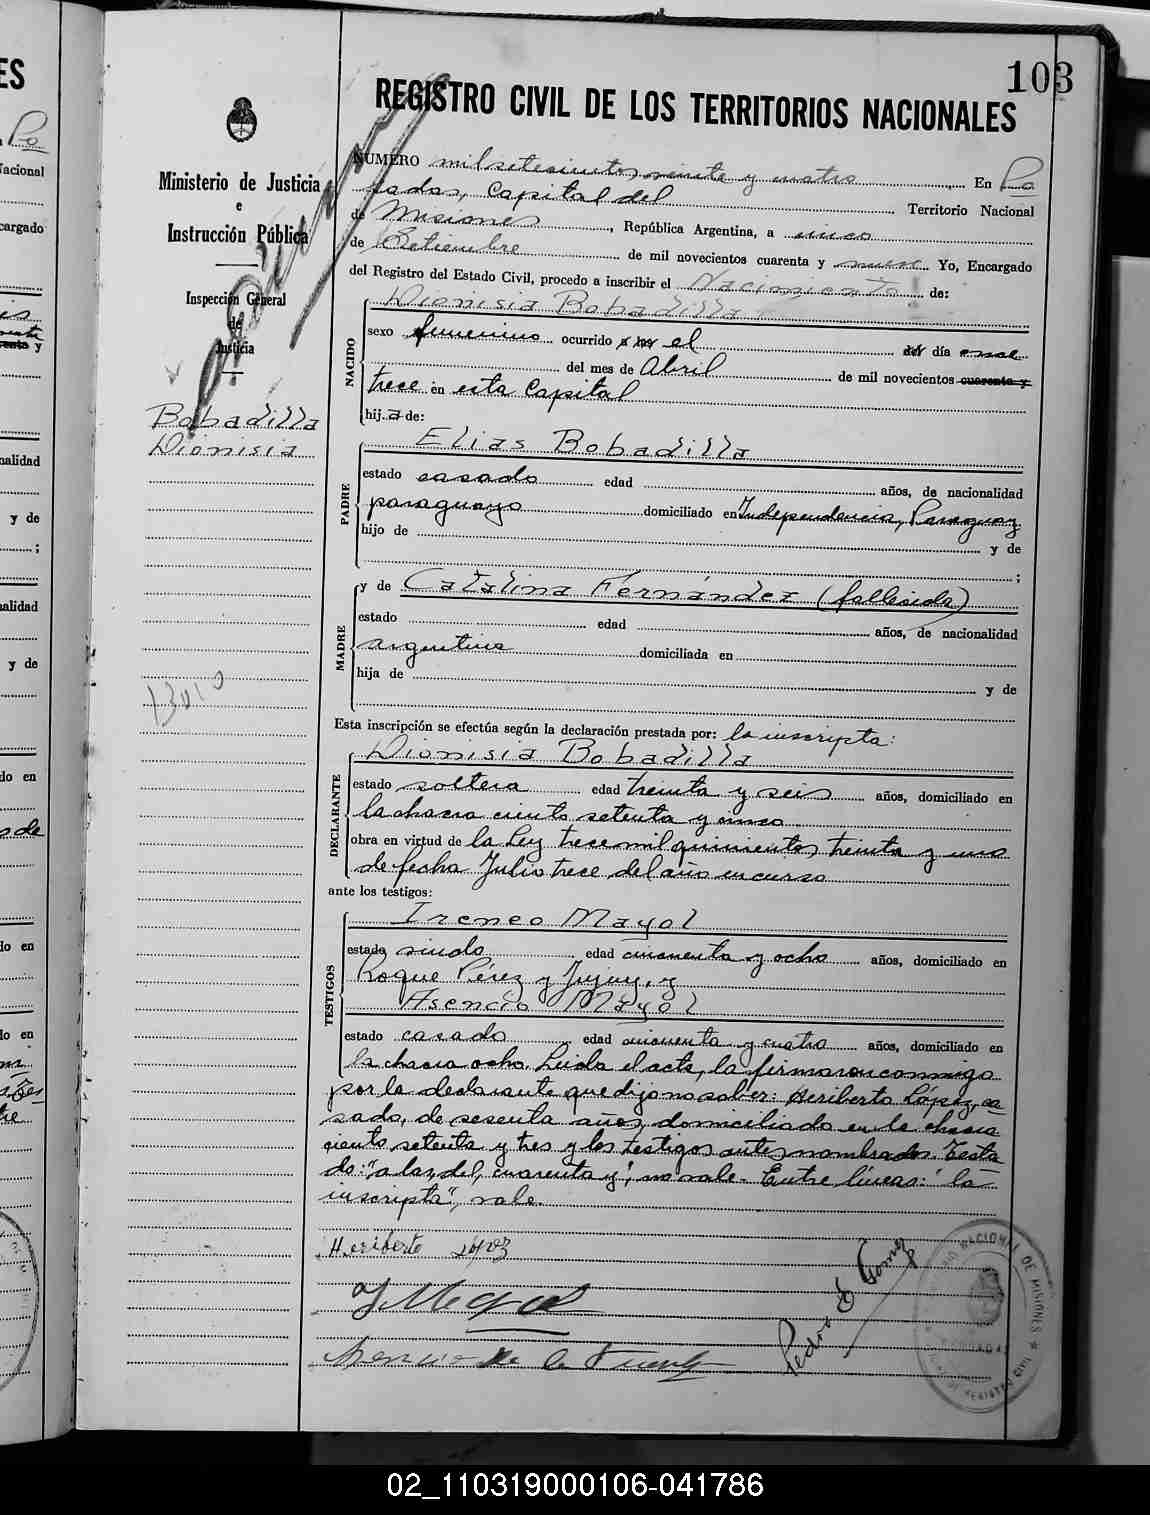 103
REGISTRO CIVIL DE LOS TERRITORIOS NACIONALES
Ministerio de Justicia
e
Instrucción Pública
Inspección General
de
Justicia
Bobadilla
Dionisia
NUMERO mil setecientos veinte y cuatro En Po
sadas, Capital del Territorio Nacional
de Misiones, República Argentina, a cinco
de Setiembre de mil novecientos cuarenta y nueve Yo, Encargado
del Registro del Estado Civil, procedo a inscribir el Nacimiento de:
Dionisia Bobadilla
NACIDO
sexo femenino ocurrido a las el del día once
del mes de Abril de mil novecientos cuarenta y
trece en esta Capital
hija de:
PADRE
Elias Bobadilla
estado casado edad años, de nacionalidad
paraguayo domiciliado en Independencia, Paraguay
hijo de y de
;
MADRE
y de Catalina Fernández (fallecida)
estado edad años, de nacionalidad
argentina domiciliada en
hija de y de
Esta inscripción se efectúa según la declaración prestada por: la inscripta:
DECLARANTE
Dionisia Bobadilla
estado soltera edad treinta y seis años, domiciliado en
la chacra ciento setenta y cinco
obra en virtud de la Ley trece mil quinientos treinta y uno
de fecha Julio trece del año en curso
ante los testigos:
TESTIGOS
Ireneo Mayol
estado viudo edad cincuenta y ocho años, domiciliado en
Roque Pérez y Jujuy, y
Asencio Mayol
estado casado edad cincuenta y cuatro años, domiciliado en
la chacra ocho. Leida el acta, la firmaron conmigo
por la declarante que dijo no saber: Heriberto López, ca
sado, de sesenta años, domiciliado en la chacra
ciento setenta y tres y los testigos antes nombrados. Testa
do: "a las, del, cuarenta y", no vale. Entre líneas: "la
inscripta", vale.
Heriberto López
Pedro E Gomez
02_110319000106-041786